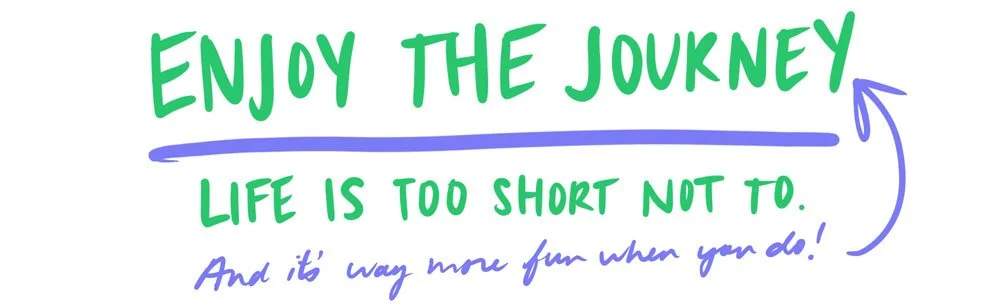 ENJOY THE JOURNEY
LIFE IS TOO SHORT NOT TO.
And it's way more fun when you do!